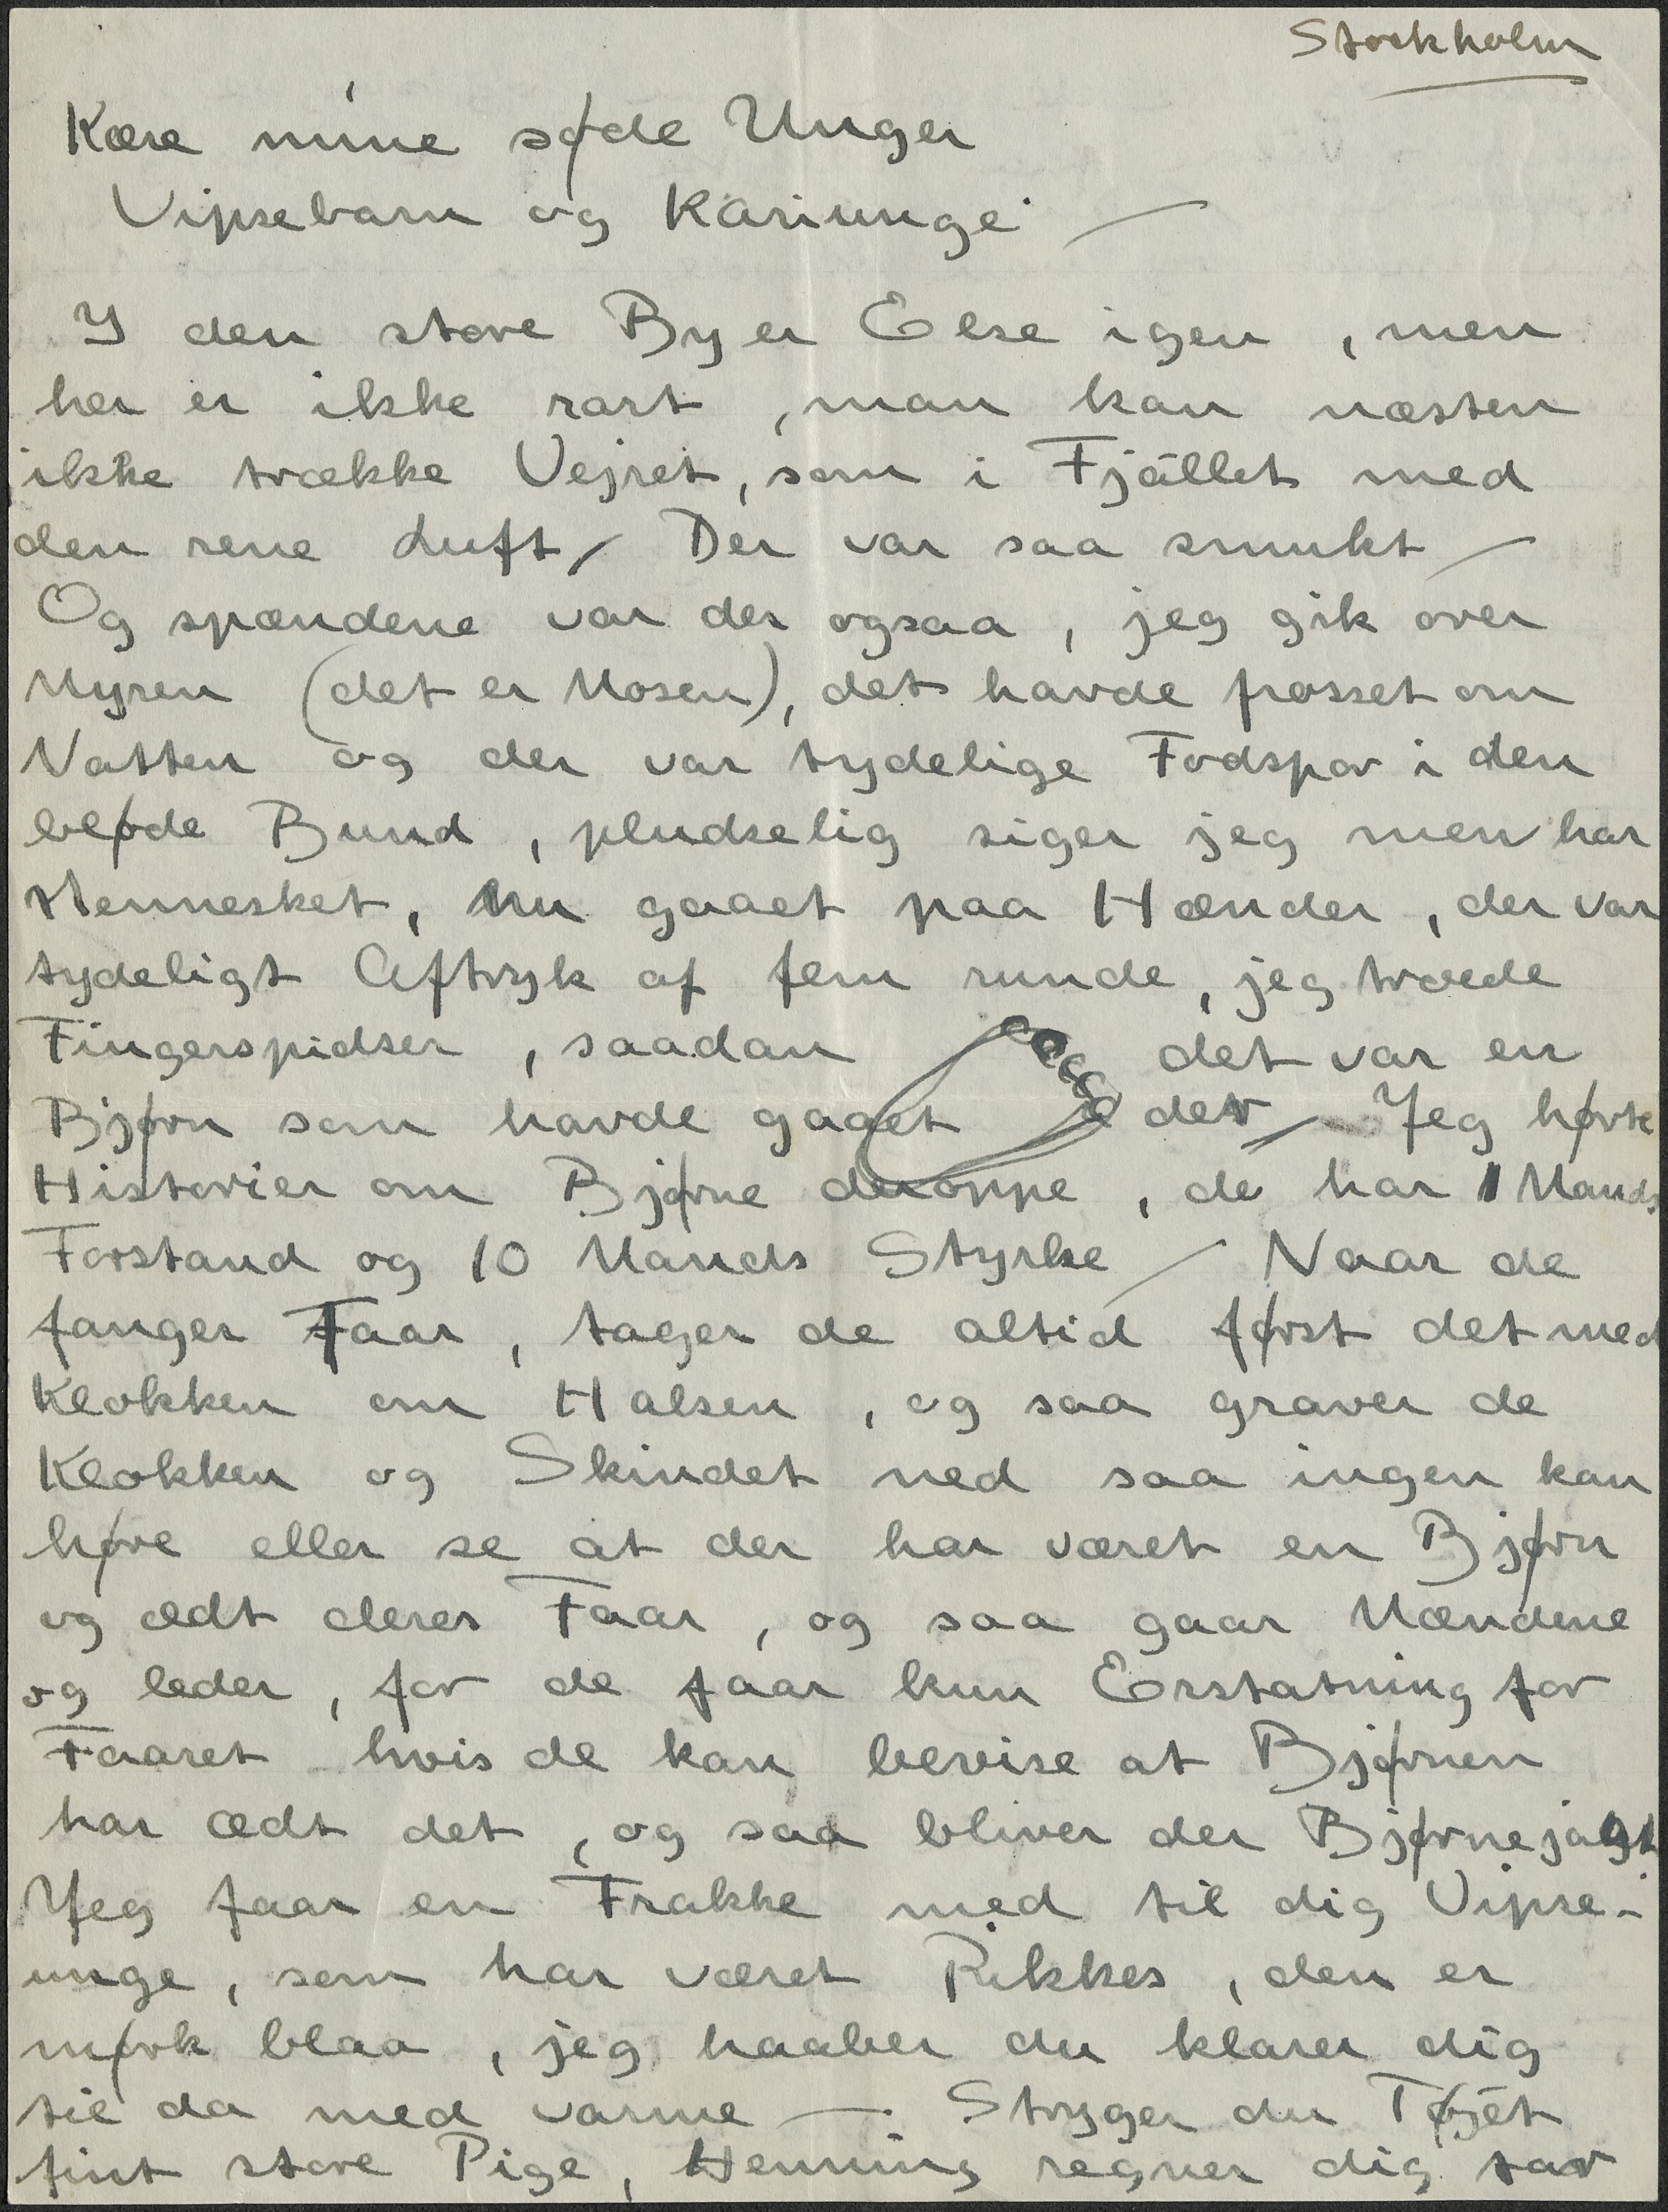 Stockholm
Kære mine søde Unger
Vipsebarn og Kariunge —
I den store By er Else igen, men
her er ikke rart, man kan næsten
ikke trække Vejret, som i Fjället med
den rene Luft / Der var saa smukt —
Og spændene var der ogsaa, jeg gik over
Myren (det er Mosen), det havde frosset om
Natten og der var tydelige Fodspor i den
bløde Bund, pludselig siger jeg men har
Mennesket, nu gaaet paa Hænder, der var
tydeligt Aftryk af fem runde, jeg troede
Fingerspidser, saadan det var en
Bjørn som havde gaaet der — Jeg hørte
Historier om Bjørne deroppe, de har 1 Mands
Forstand og 10 Mands Styrke — Naar de
fanger Faar, tager de altid først det med
Klokken om Halsen, og saa graver de
Klokken og Skindet ned saa ingen kan
høre eller se at der har været en Bjørn
og ædt deres Faar, og saa gaar Mændene
og leder, for de faar kun Erstatning for
Faaret hvis de kan bevise at Bjørnen
har ædt det, og saa bliver der Bjørnejagt
Jeg faar en Frakke med til dig Vipse-
unge, som har været Rikkes, den er
mørk blaa, jeg haaber du klarer dig
til da med varme — Stryger du Tøjet
fint store Pige, Henning regner dig for